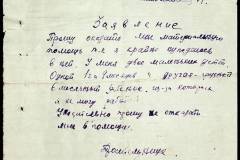 Заявление
Прошу оказать мне материальную
помощь т.к я крайне нуждаюсь
в ней У меня двое маленьких детей.
Одной 1 а другая
в месячный из-за которых
я не могу
Убедительно прошу не отказать
мне в помощи.